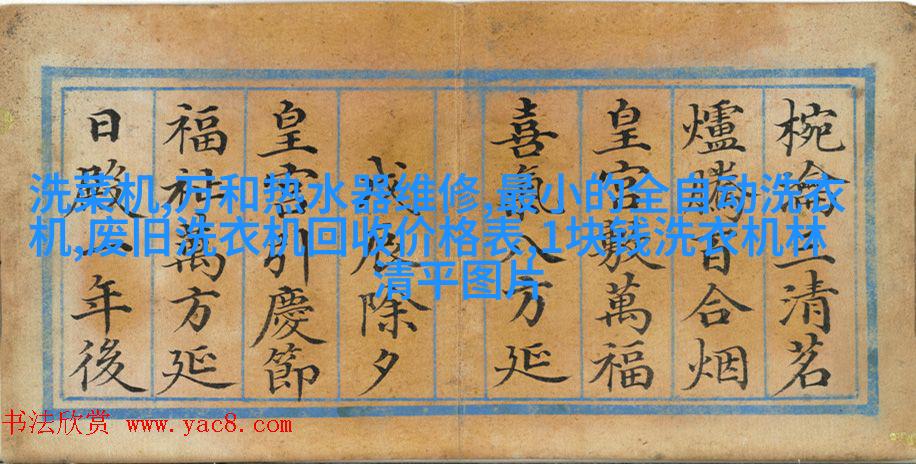 椀三清茗
爐騰百合烟
皇宮敷萬福
喜氣八方延
戊辰除夕
皇宮引慶節
福祉萬方延
日殿一年後
洗菜机,万和热水器维修,最小的全自动洗衣
机,废旧洗衣机回收价格表,1块钱洗衣机林
清平图片
书法欣赏 www.yac8.com